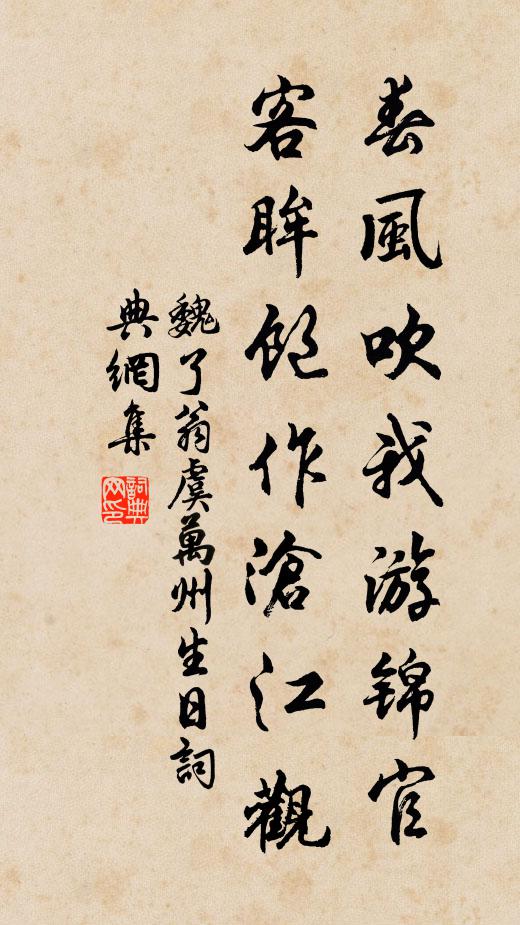 春風吹我游錦官
客眸飽作滄江觀
魏了翁虞萬州生日詞
典網集
詞典网印